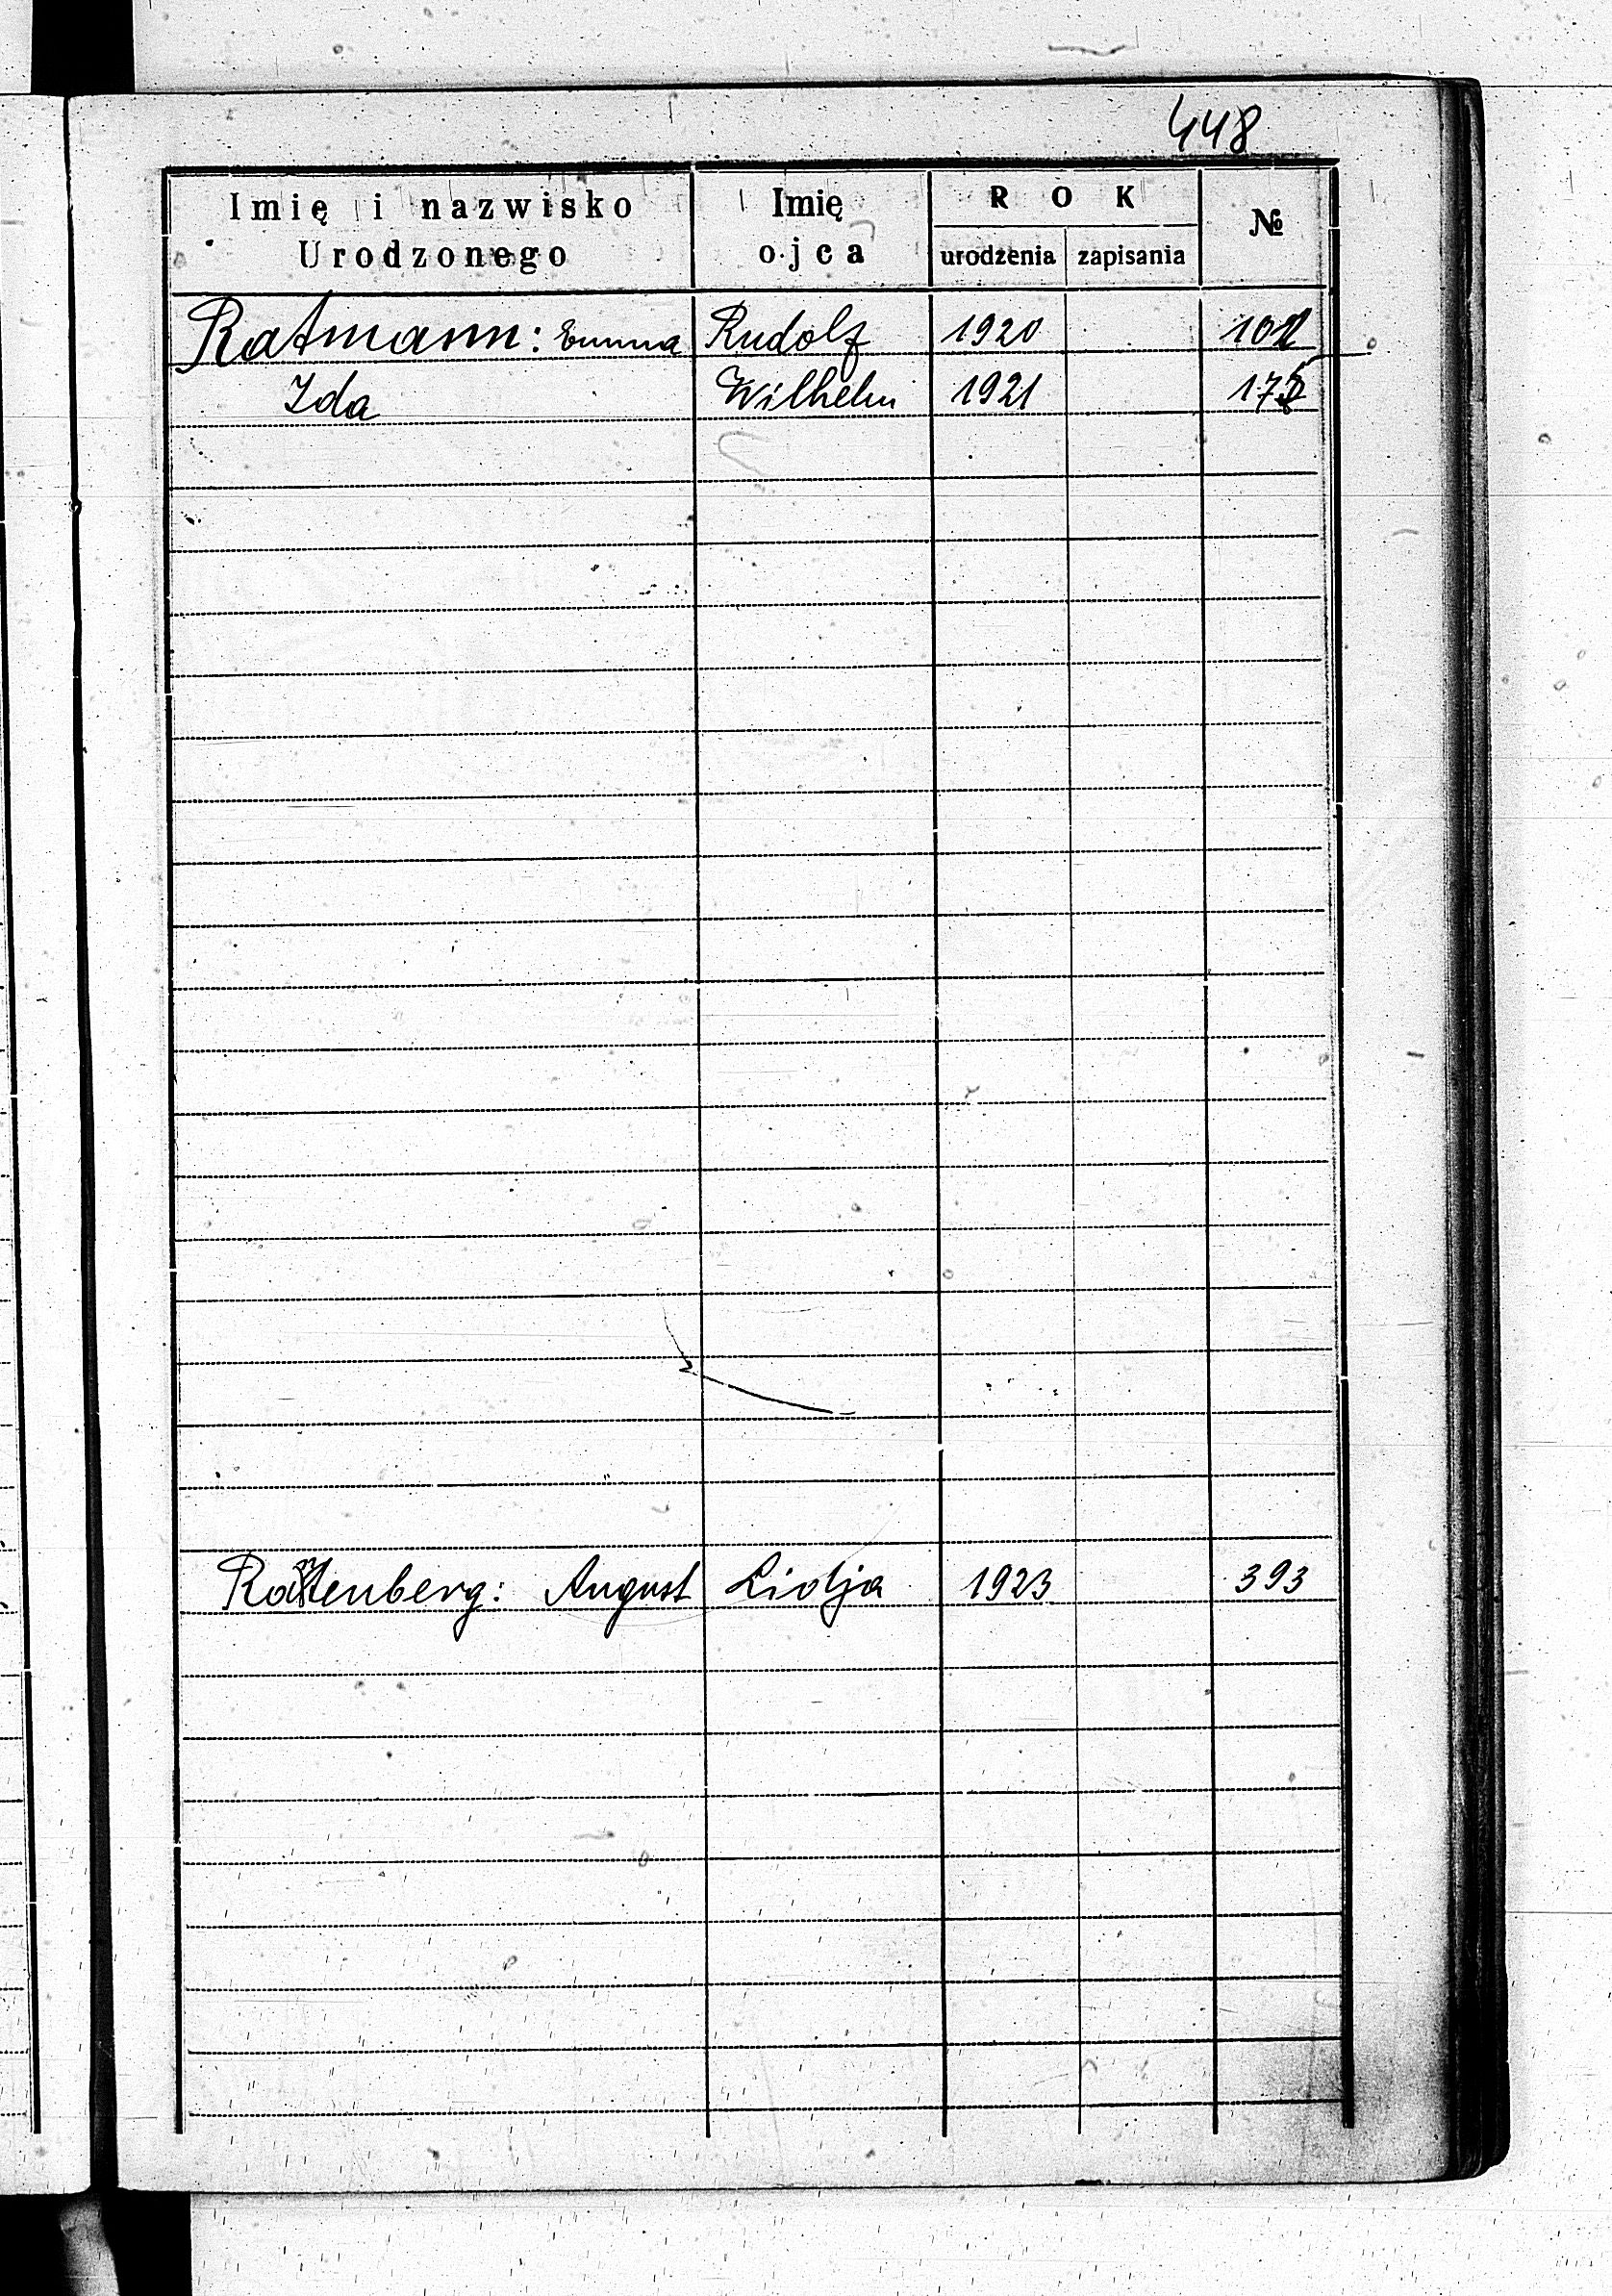 448
Imię i nazwisko Urodzonego Imię ojca ROK №
urodzenia zapisania
Ratmann: Emma Rudolf 1920
Ida Wilhelm 1921
August Lidja 1923 393